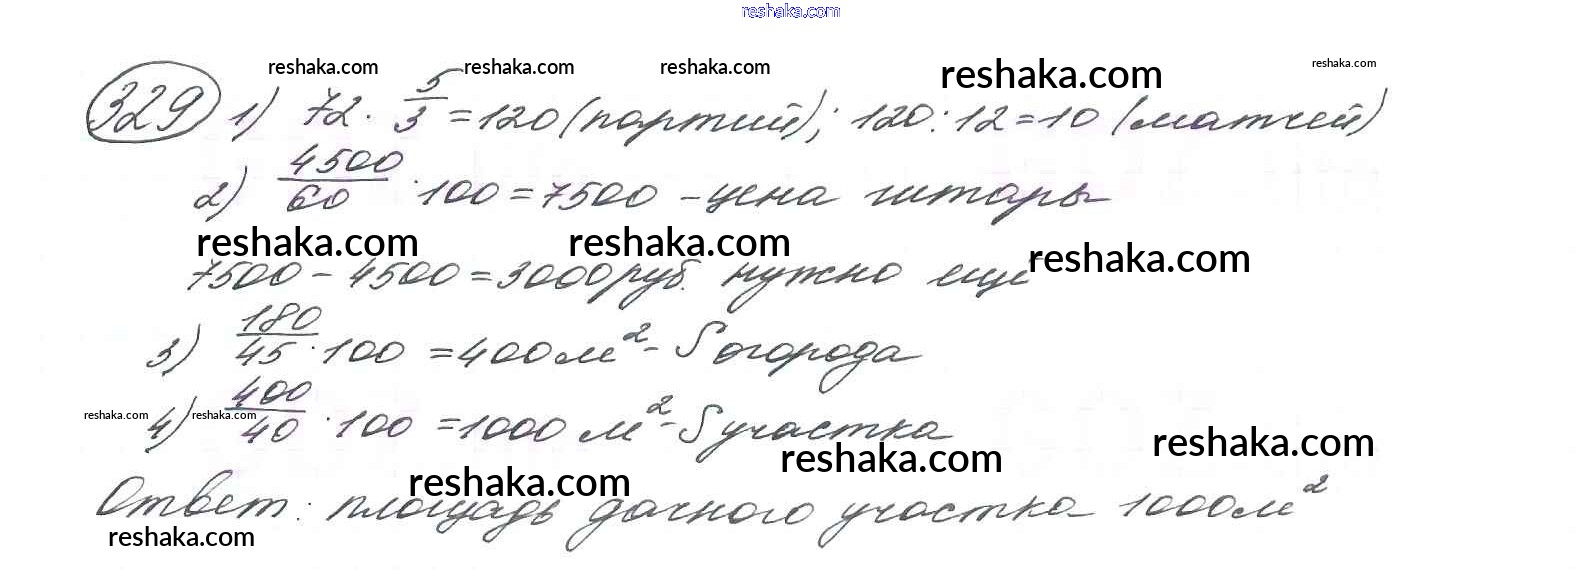 reshaka.com
reshaka.com reshaka.com reshaka.com reshaka.com reshaka.com
329 1) 72 · 5/3 = 120 (партий); 120 : 12 = 10 (матчей)
2) 4500/60 · 100 = 7500 - цена гитары
reshaka.com reshaka.com reshaka.com
7500 - 4500 = 3000 руб. нужно ещё
3) 180/45 · 100 = 400 м² - S огорода
4) 400/40 · 100 = 1000 м² - S участка
reshaka.com reshaka.com
reshaka.com reshaka.com reshaka.com
Ответ: площадь дачного участка 1000 м²
reshaka.com